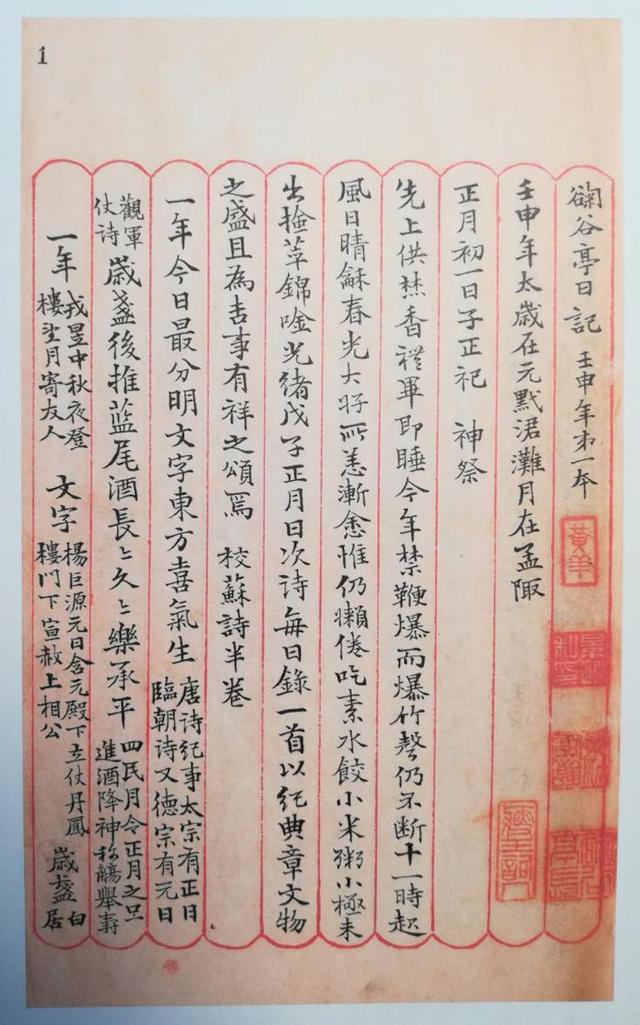 1
谷亭日記 壬申年第一本 黃羊
壬申年太歲在元默涒灘月在孟陬
正月初一日子正祀 神祭
先上供焚香禮畢即睡今年禁鞭爆而爆竹聲仍不斷十一時起
風日晴龢春光大好所恙漸愈惟仍懶倦吃素水餃小米粥小極未
出撿莘錦唫光緒戊子正月日次詩每日錄一首以紀典章文物
之盛且為吉事有祥之頌焉 校蘇詩半卷
一年今日最分明文字東方喜氣生 唐詩紀事太宗有正日臨朝詩又德宗有元日
觀軍仗詩 歲盞後推藍尾酒長〻久〻樂承平 四民月令正月之旦進酒降神称觴舉壽
一年 戎昱中秋夜澄樓望月寄友人 文字 楊巨源元日含元殿下立仗丹鳳樓門下宣赦上相公 歲盞 白居